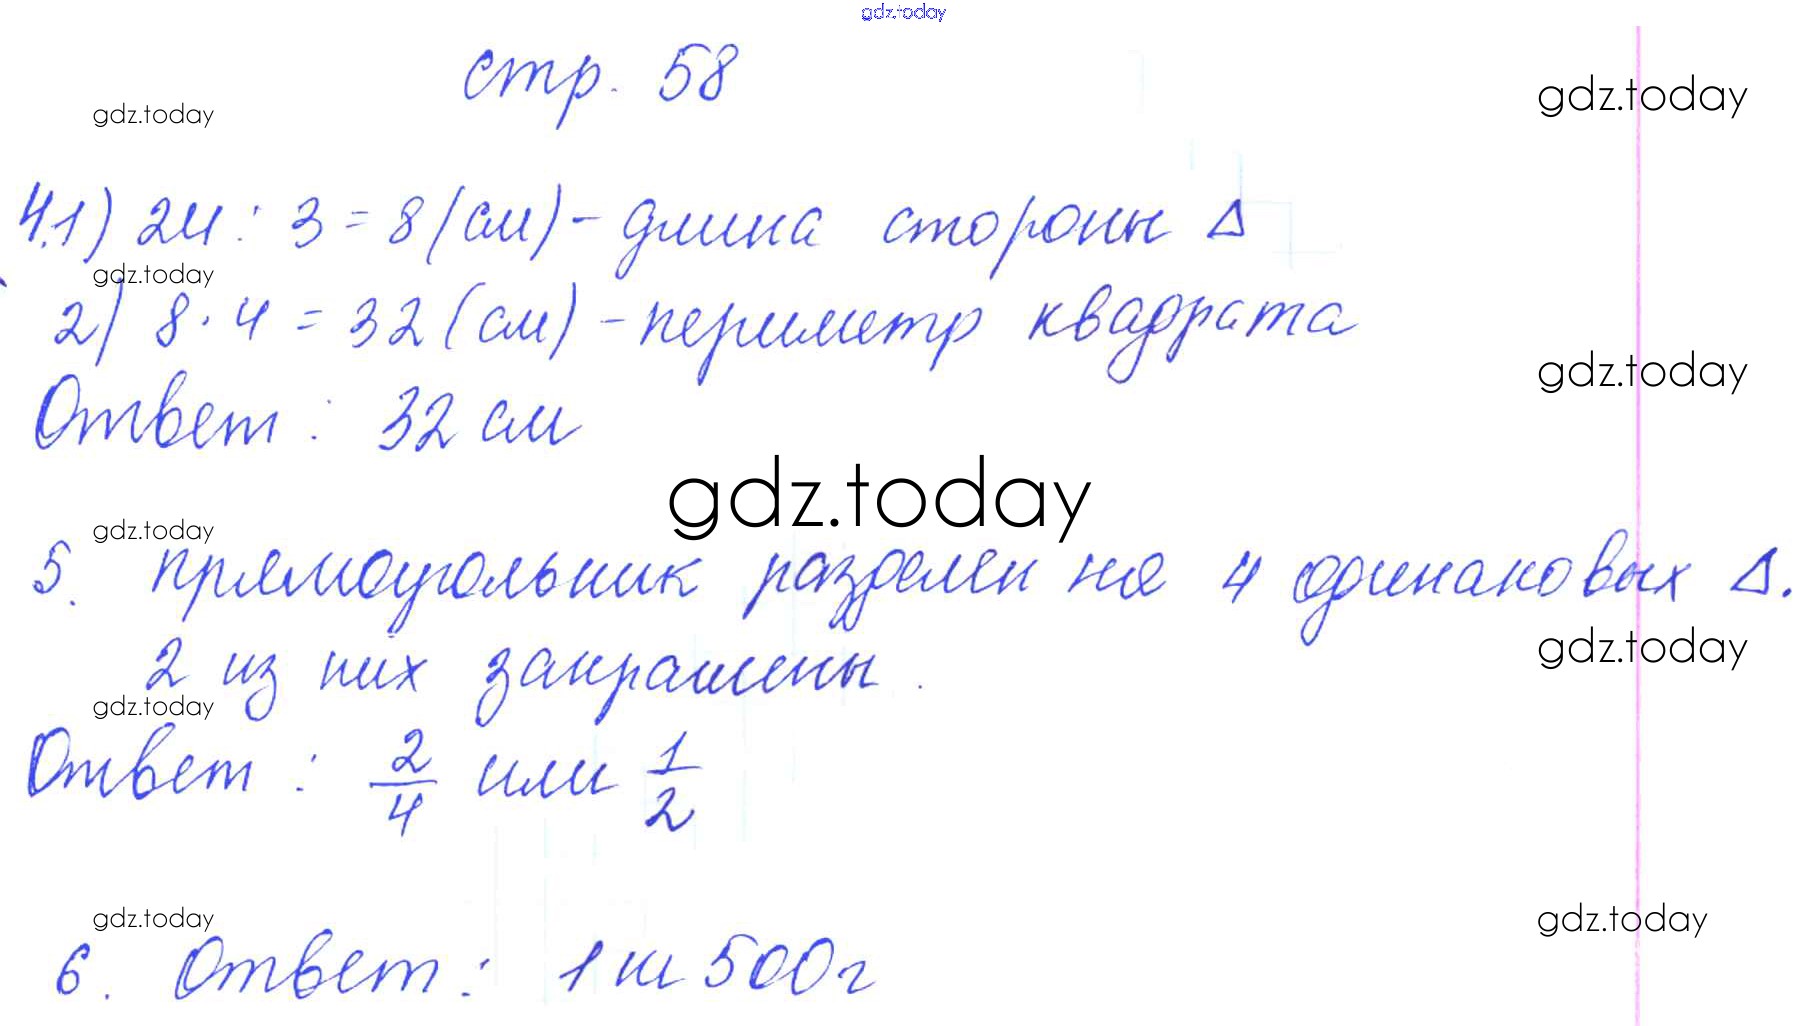 gdz.today
стр. 58
gdz.today
gdz.today
4.1) 24 : 3 = 8 (см) - длина стороны Δ
gdz.today
2) 8 · 4 = 32 (см) - периметр квадрата
gdz.today
Ответ : 32 см
gdz.today
gdz.today
5. Прямоугольник разделен на 4 одинаковых Δ.
2 из них закрашены.
gdz.today
gdz.today
Ответ : 2/4 или 1/2
gdz.today
gdz.today
6. Ответ : 500г